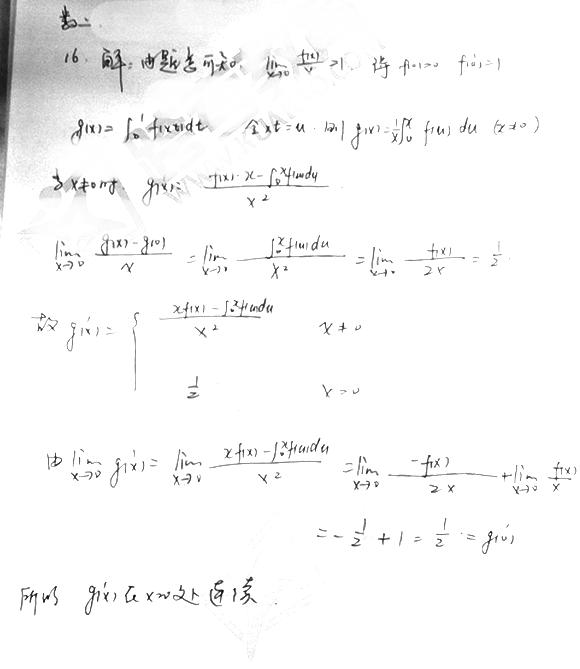 数二.
16. 解: 由题意可知. lim x→0 f(x)/x = 1. 得 f(0)=0 f'(0)=1
g(x) = ∫₀¹ f(xt)dt 令 xt=u. 则 g(x) = 1/x ∫₀ˣ f(u) du (x≠0)
当 x≠0时. g'(x) = (f(x)·x - ∫₀ˣ f(u)du) / x²
lim x→0 (g(x)-g(0))/x = lim x→0 ∫₀ˣ f(u)du / x² = lim x→0 f(x)/2x = 1/2.
故 g'(x) = { (xf(x) - ∫₀ˣ f(u)du) / x² x≠0
1/2 x=0
由 lim x→0 g'(x) = lim x→0 (xf(x) - ∫₀ˣ f(u)du) / x² = lim x→0 -f(x)/2x + lim x→0 f(x)/x
= -1/2 + 1 = 1/2 = g'(0)
所以 g'(x) 在 x=0处连续.